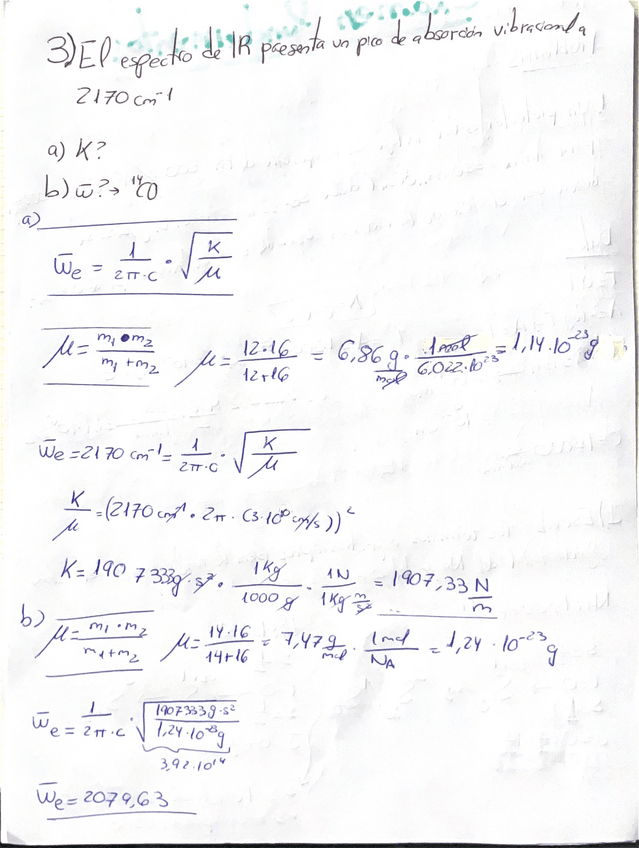 3) El espectro de IR presenta un pico de absorción vibracional a
2170 cm⁻¹
a) K?
b) ω̄? → ¹⁴CO
a)
ω̄e = 1/(2π·c) · √(K/μ)
μ = (m₁·m₂)/(m₁+m₂) μ = (12·16)/(12+16) = 6,86 g/mol · 1 mol/(6,022·10²³) = 1,14·10⁻²³ g
ω̄e = 2170 cm⁻¹ = 1/(2π·c) · √(K/μ)
K/μ = (2170 cm⁻¹ · 2π · (3·10¹⁰ cm/s))²
K = 1907333 g·s² · 1Kg/1000 g · 1N/(1Kg m/s²) = 1907,33 N/m
b) μ = (m₁·m₂)/(m₁+m₂) μ = (14·16)/(14+16) = 7,47 g/mol · 1mol/NA = 1,24·10⁻²³ g
ω̄e = 1/(2π·c) · √(1907333 g·s²/1,24·10⁻²³ g)
3,92·10¹⁴
ω̄e = 2079,63